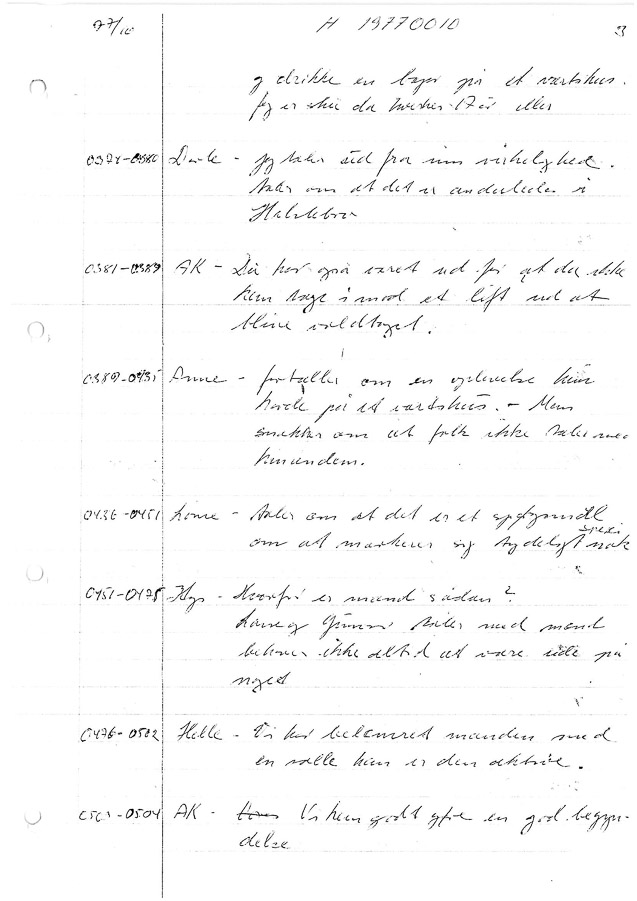 77/10 H 19770010 3
og drikke en bajer på et værtshus.
Jeg er ikke da hverken 17 år eller
0374-0380 Dorte - Jeg taler ud fra min virkelighed.
taler om at det er anderledes i
Holstebro
0381-0389 AK - Du har også været ud for at du ikke
kan tage imod et lift ud at
blive voldtaget.
0389-0435 Anne - fortæller om en oplevelse hun
havde på et værtshus. - Man
snakker om at folk ikke taler med
hinanden.
0436-0451 Lone - taler om at det er et spørgsmål
om at markere sig tydeligt nok
0451-0475 - Hvorfor er mænd sådan?
Lone og taler med mænd
behøver ikke altid at være ude på
noget
0476-0502 Helle - Vi har belemret manden med
en rolle han er den aktive.
0503-0504 AK - Vi kan godt gøre en god begyn-
delse